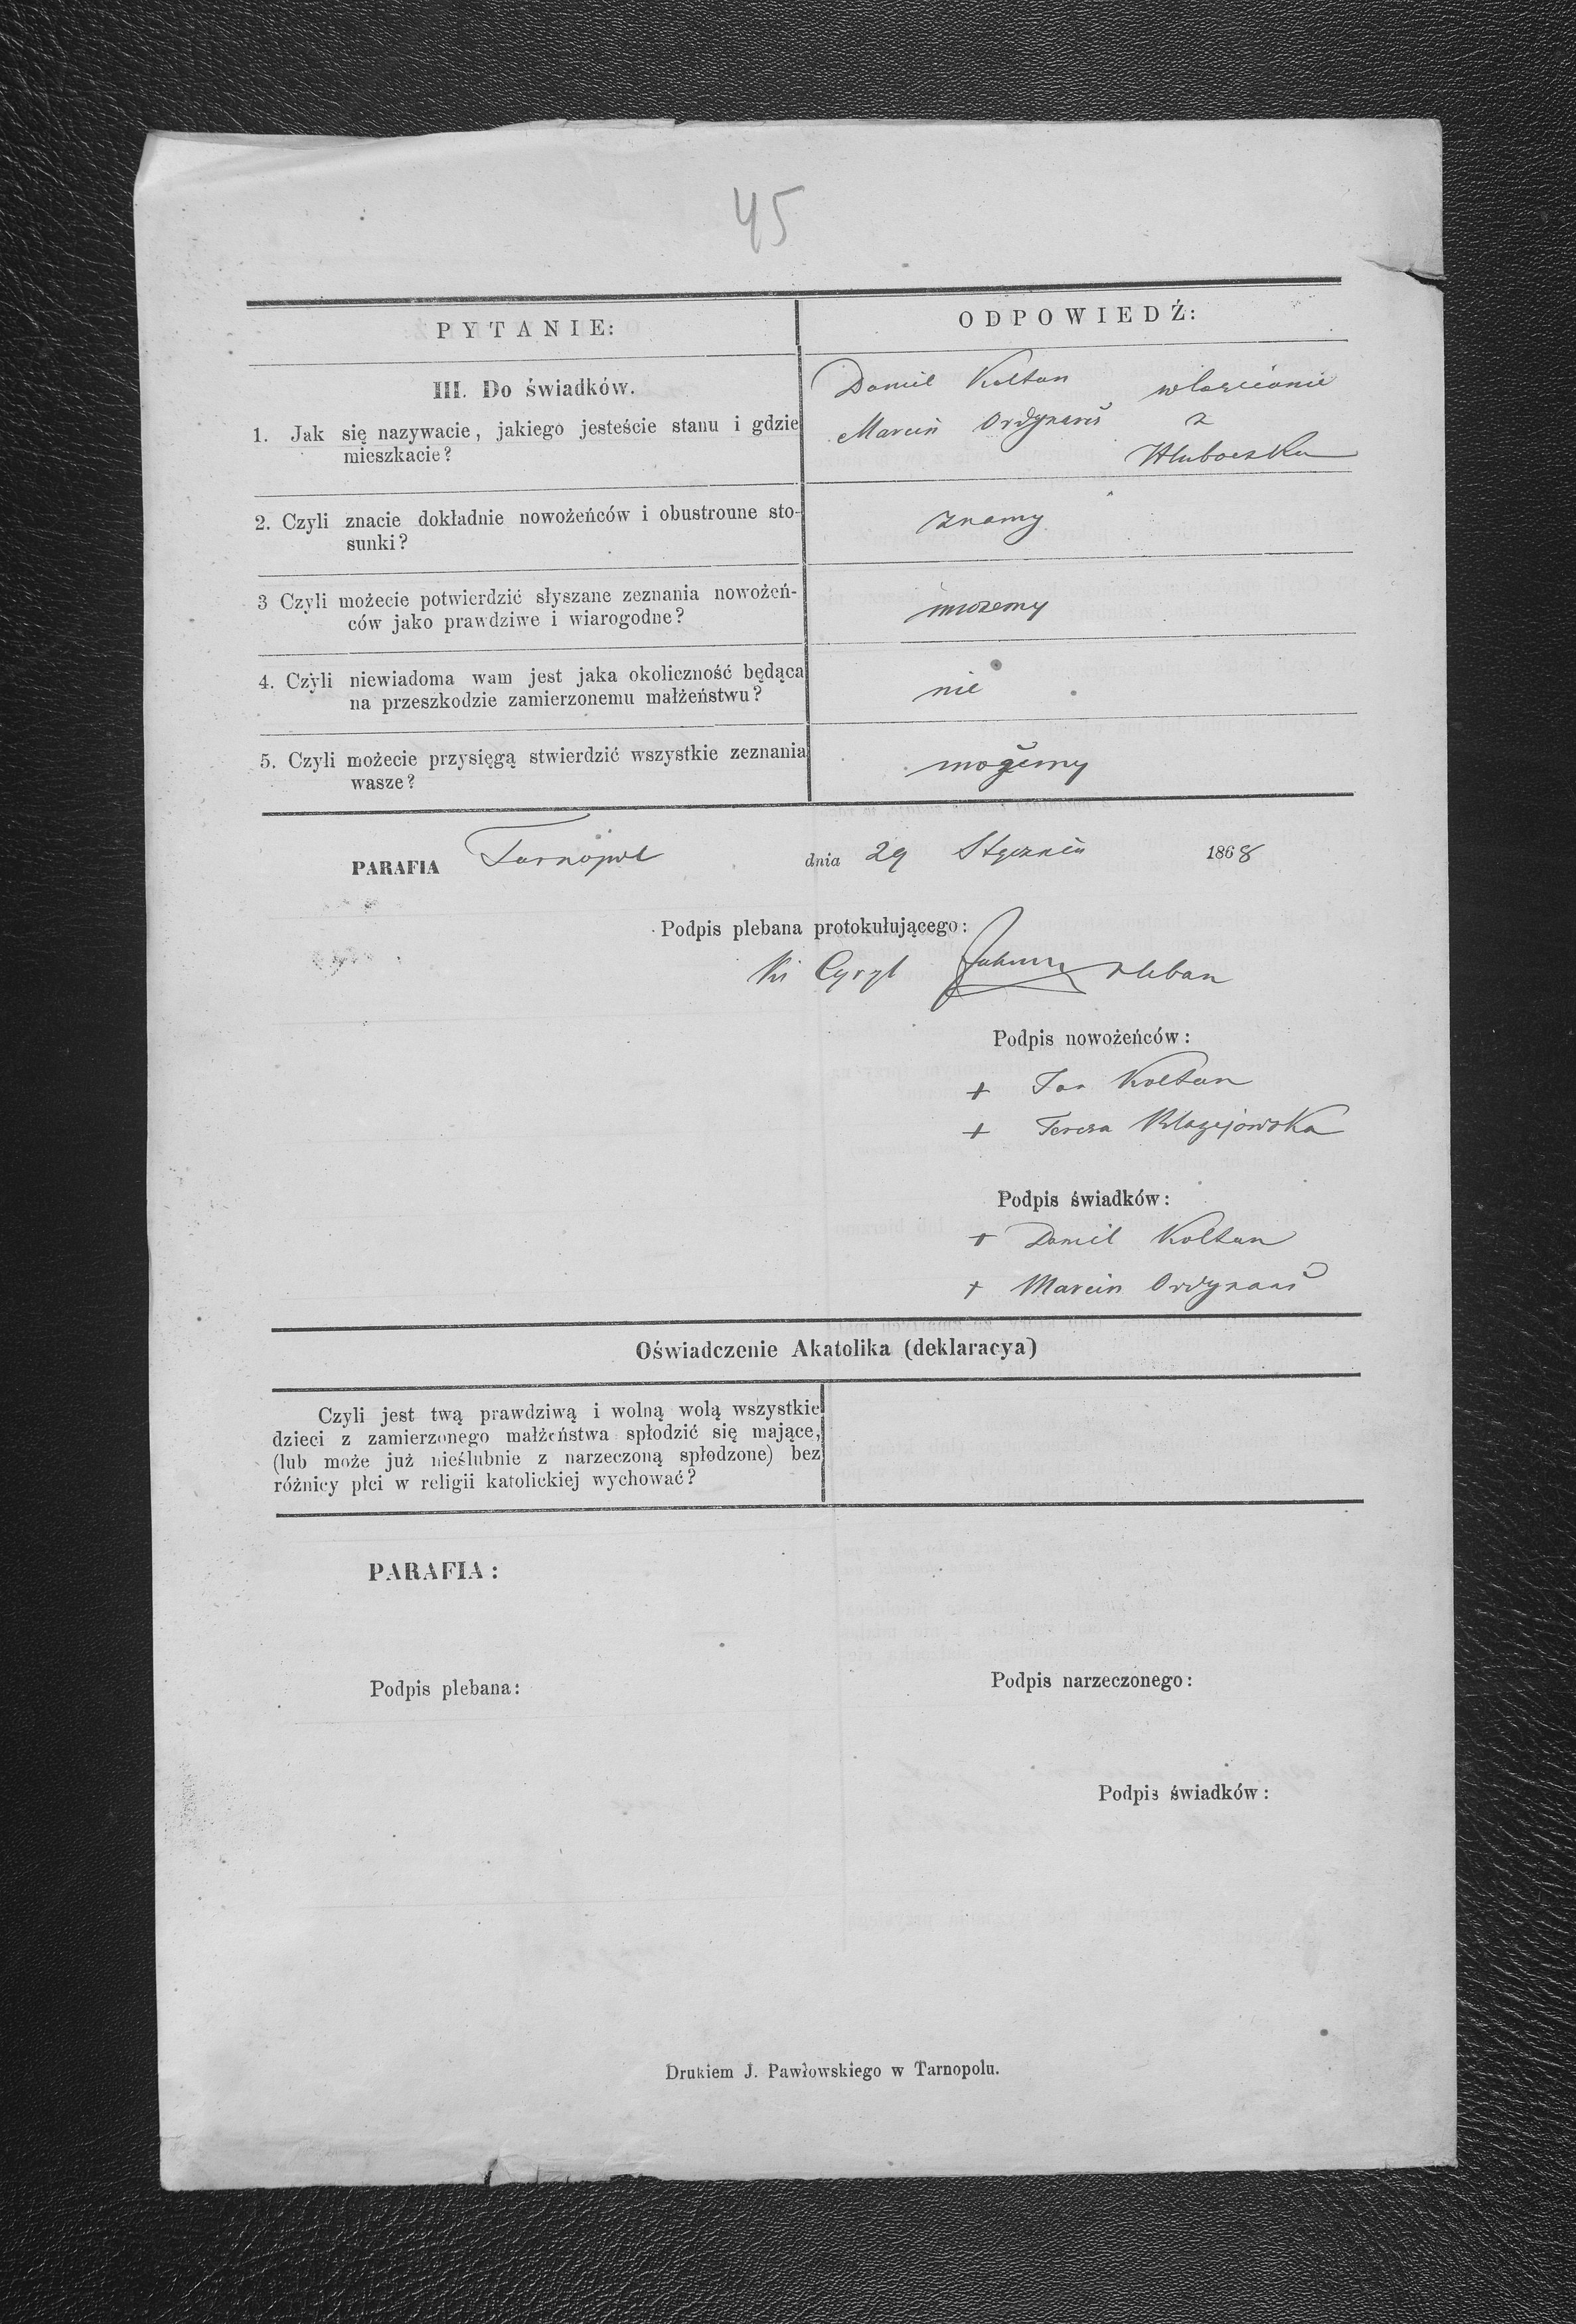 45
PYTANIE:
ODPOWIEDŹ:
III. Do świadków.
1. Jak się nazywacie, jakiego jesteście stanu i gdzie
mieszkacie?
Daniel Koltun włoscianie
Marcin Ordynans z
Hluboczka
2. Czyli znacie dokładnie nowożeńców i obustroune sto-
sunki?
znamy
3 Czyli możecie potwierdzić słyszane zeznania nowożeń-
ców jako prawdziwe i wiarogodne?
mozemy
4. Czyli niewiadoma wam jest jaka okoliczność będąca
na przeszkodzie zamierzonemu małżeństwu?
nie
5. Czyli możecie przysięgą stwierdzić wszystkie zeznania
wasze?
możemy
PARAFIA Tarnopol dnia 29 Stycznia 1868
Podpis plebana protokułującego:
Ks Cyryl pleban
Podpis nowożeńców:
+ Jan Koltun
+ Teresa Blazejowska
Podpis świadków:
+ Daniel Koltun
+ Marcin Ordynans
Oświadczenie Akatolika (deklaracya)
Czyli jest twą prawdziwą i wolną wolą wszystkie
dzieci z zamierzonego małżeństwa spłodzić się mające,
(lub może już nieślubnie z narzeczoną spłodzone) bez
różnicy płci w religii katolickiej wychować?
PARAFIA:
Podpis plebana:
Podpis narzeczonego:
Podpis świadków:
Drukiem J. Pawłowskiego w Tarnopolu.